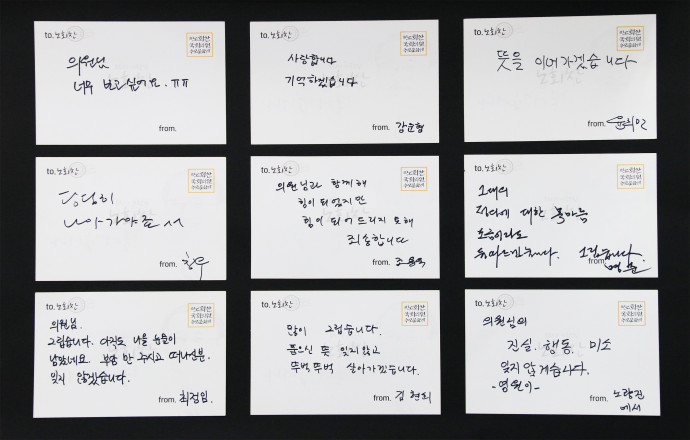 to. 노회찬
의원님
너무 보고싶어요. ㅠㅠ
from.
to. 노회찬
사랑합니다
기억하겠습니다
from.
to. 노회찬
뜻을 이어가겠습니다
from.
to. 노회찬
당당히
나아가야죠
from.
to. 노회찬
의원님과 함께해
힘이 되었지만
힘이 되어 드리지 못해
죄송합니다
from.
to. 노회찬
그대의
대한 목마름
그립습니다.
from.
to. 노회찬
의원님.
그립습니다. 아직도 나올 눈물이
남았네요. 부담 만 주시고 떠나신분.
잊지 않겠습니다.
from. 최정임.
to. 노회찬
많이 그립습니다.
품으신 뜻 잊지 않고
뚜벅뚜벅 살아가겠습니다.
from. 김현희
to. 노회찬
의원님의
진실. 행동. 미소
잊지 않겠습니다.
-영원히-
from. 노량진
에서